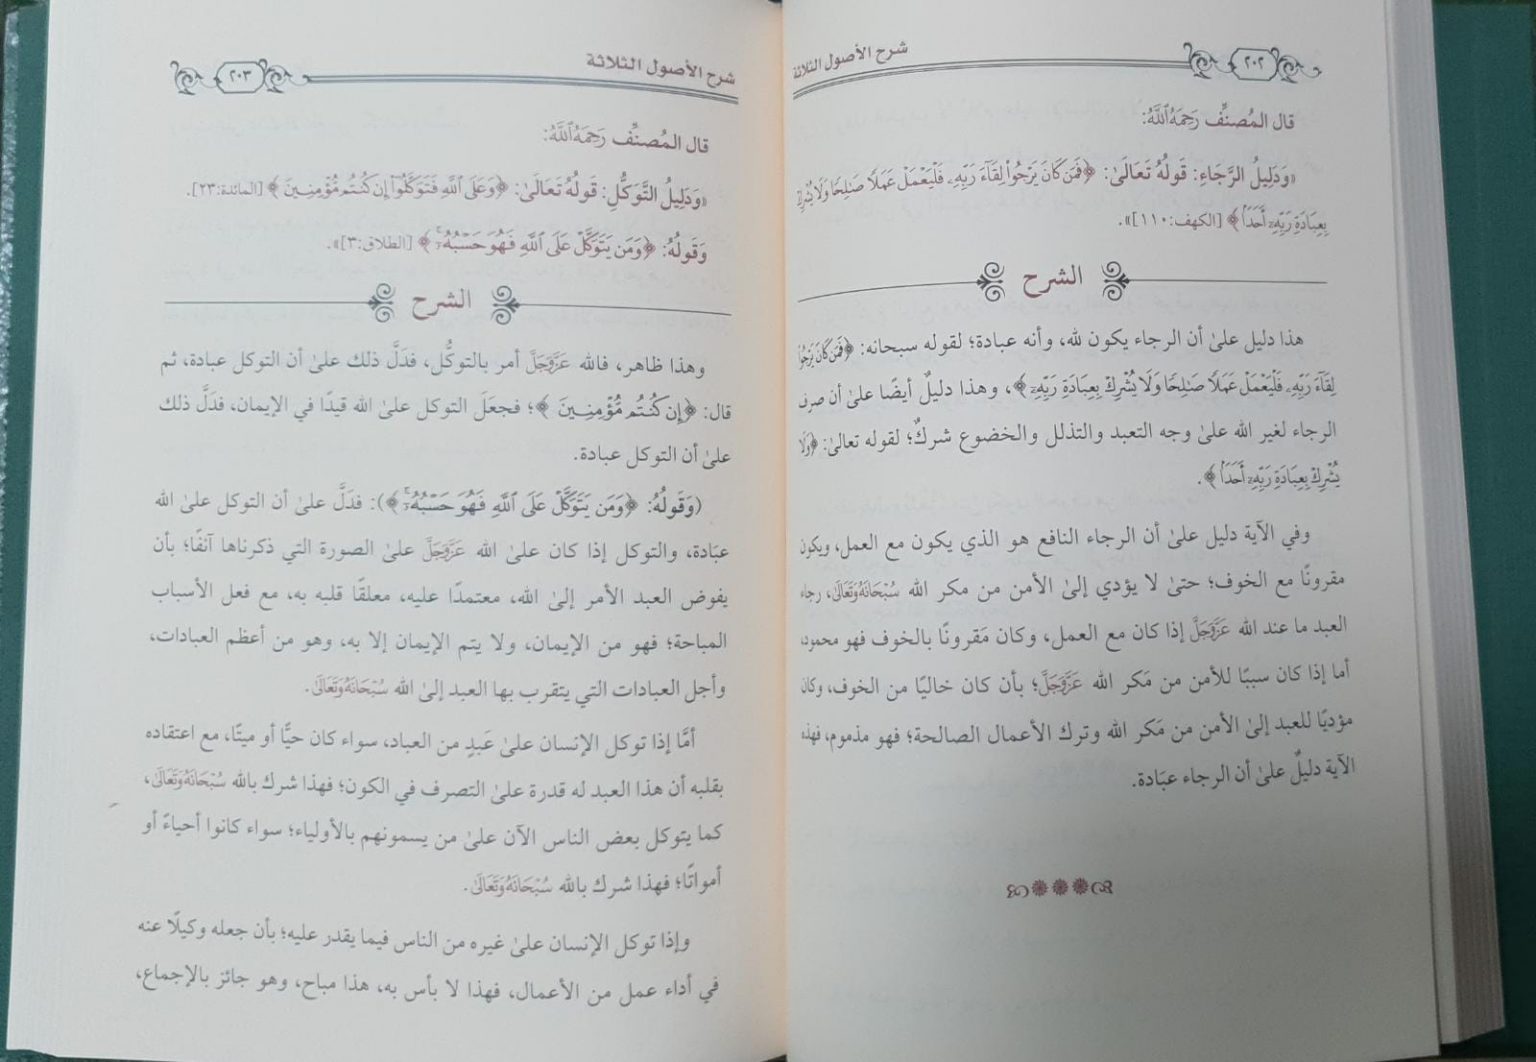 شرح الأصول الثلاثة
٢٠٢
قال المُصنِّف رَحِمَهُ ٱللَّهُ:
«وَدَلِيلُ الرَّجَاءِ: قَولُهُ تَعَالَىٰ: ﴿فَمَن كَانَ يَرۡجُواْ لِقَآءَ رَبِّهِۦ فَلۡيَعۡمَلۡ عَمَلٗا صَٰلِحٗا وَلَا يُشۡرِكۡ
بِعِبَادَةِ رَبِّهِۦٓ أَحَدَۢا﴾ [الكهف:١١٠]».
الشرح
هذا دليل علىٰ أن الرجاء يكون لله، وأنه عبادة؛ لقوله سبحانه: ﴿فَمَن كَانَ يَرۡجُواْ
لِقَآءَ رَبِّهِۦ فَلۡيَعۡمَلۡ عَمَلٗا صَٰلِحٗا وَلَا يُشۡرِكۡ بِعِبَادَةِ رَبِّهِۦٓ﴾، وهذا دليلٌ أيضًا علىٰ أن صرف
الرجاء لغير الله علىٰ وجه التعبد والتذلل والخضوع شركٌ؛ لقوله تعالىٰ: ﴿وَلَا
يُشۡرِكۡ بِعِبَادَةِ رَبِّهِۦٓ أَحَدَۢا﴾.
وفي الآية دليل علىٰ أن الرجاء النافع هو الذي يكون مع العمل، ويكون
مقرونًا مع الخوف؛ حتىٰ لا يؤدي إلىٰ الأمن من مكر الله سُبْحَانَهُ وَتَعَالَىٰ، رجاء
العبد ما عند الله عَزَّوَجَلَّ إذا كان مع العمل، وكان مَقرونًا بالخوف فهو محمود،
أما إذا كان سببًا للأمن من مَكر الله عَزَّوَجَلَّ؛ بأن كان خاليًا من الخوف، وكان
مؤديًا للعبد إلىٰ الأمن من مَكر الله وترك الأعمال الصالحة؛ فهو مذموم، فهذه
الآية دليلٌ علىٰ أن الرجاء عبَادة.
شرح الأصول الثلاثة
٢٠٣
قال المُصنِّف رَحِمَهُ ٱللَّهُ:
«وَدَلِيلُ التَّوَكُّلِ: قَولُهُ تَعَالَىٰ: ﴿وَعَلَى ٱللَّهِ فَتَوَكَّلُوٓاْ إِن كُنتُم مُّؤۡمِنِينَ﴾ [المائدة:٢٣].
وَقَولُهُ: ﴿وَمَن يَتَوَكَّلۡ عَلَى ٱللَّهِ فَهُوَ حَسۡبُهُۥٓۚ﴾ [الطلاق:٣]».
الشرح
وهذا ظاهر، فالله عَزَّوَجَلَّ أمر بالتوكُّل، فدَلَّ ذلك علىٰ أن التوكل عبادة، ثم
قال: ﴿إِن كُنتُم مُّؤۡمِنِينَ﴾؛ فجعَلَ التوكل علىٰ الله قيدًا في الإيمان، فدَلَّ ذلك
علىٰ أن التوكل عبادة.
(وَقَولُهُ: ﴿وَمَن يَتَوَكَّلۡ عَلَى ٱللَّهِ فَهُوَ حَسۡبُهُۥٓۚ﴾): فدَلَّ علىٰ أن التوكل علىٰ الله
عبَادة، والتوكل إذا كان علىٰ الله عَزَّوَجَلَّ علىٰ الصورة التي ذكرناها آنفًا؛ بأن
يفوض العبد الأمر إلىٰ الله، معتمدًا عليه، معلقًا قلبه به، مع فعل الأسباب
المباحة؛ فهو من الإيمان، ولا يتم الإيمان إلا به، وهو من أعظم العبادات،
وأجل العبادات التي يتقرب بها العبد إلىٰ الله سُبْحَانَهُ وَتَعَالَىٰ.
أمَّا إذا توكل الإنسان علىٰ عَبدٍ من العباد، سواء كان حيًّا أو ميتًا، مع اعتقاده
بقلبه أن هذا العبد له قدرة علىٰ التصرف في الكون؛ فهذا شرك بالله سُبْحَانَهُ وَتَعَالَىٰ،
كما يتوكل بعض الناس الآن علىٰ من يسمونهم بالأولياء؛ سواء كانوا أحياءً أو
أمواتًا؛ فهذا شرك بالله سُبْحَانَهُ وَتَعَالَىٰ.
وإذا توكل الإنسان علىٰ غيره من الناس فيما يقدر عليه؛ بأن جعله وكيلًا عنه
في أداء عمل من الأعمال، فهذا لا بأس به، هذا مباح، وهو جائز بالإجماع،